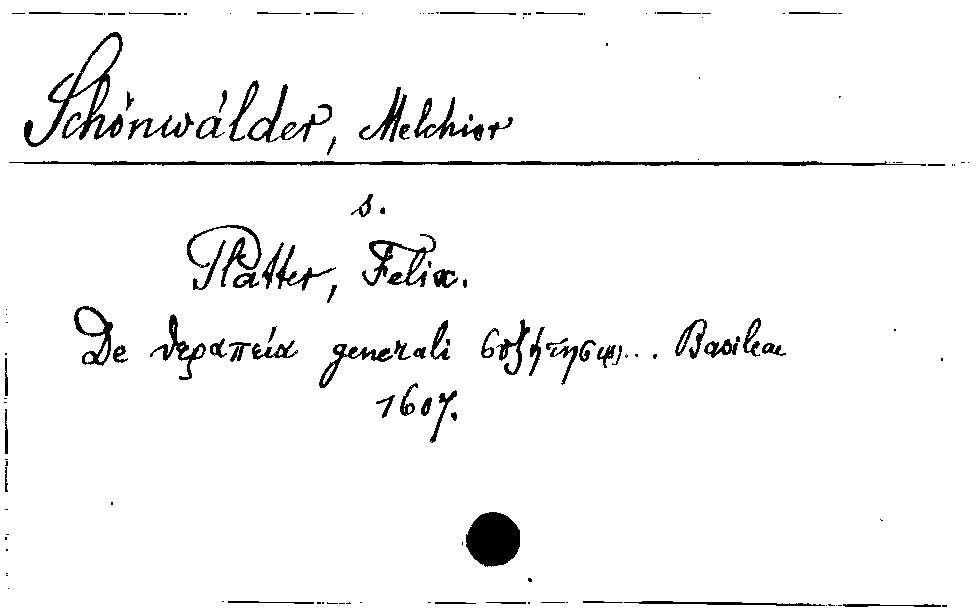 Schönwälder, Melchior
s.
Platter, Felix.
De θεραπεία generali συζήτησις... Basileae
1607.